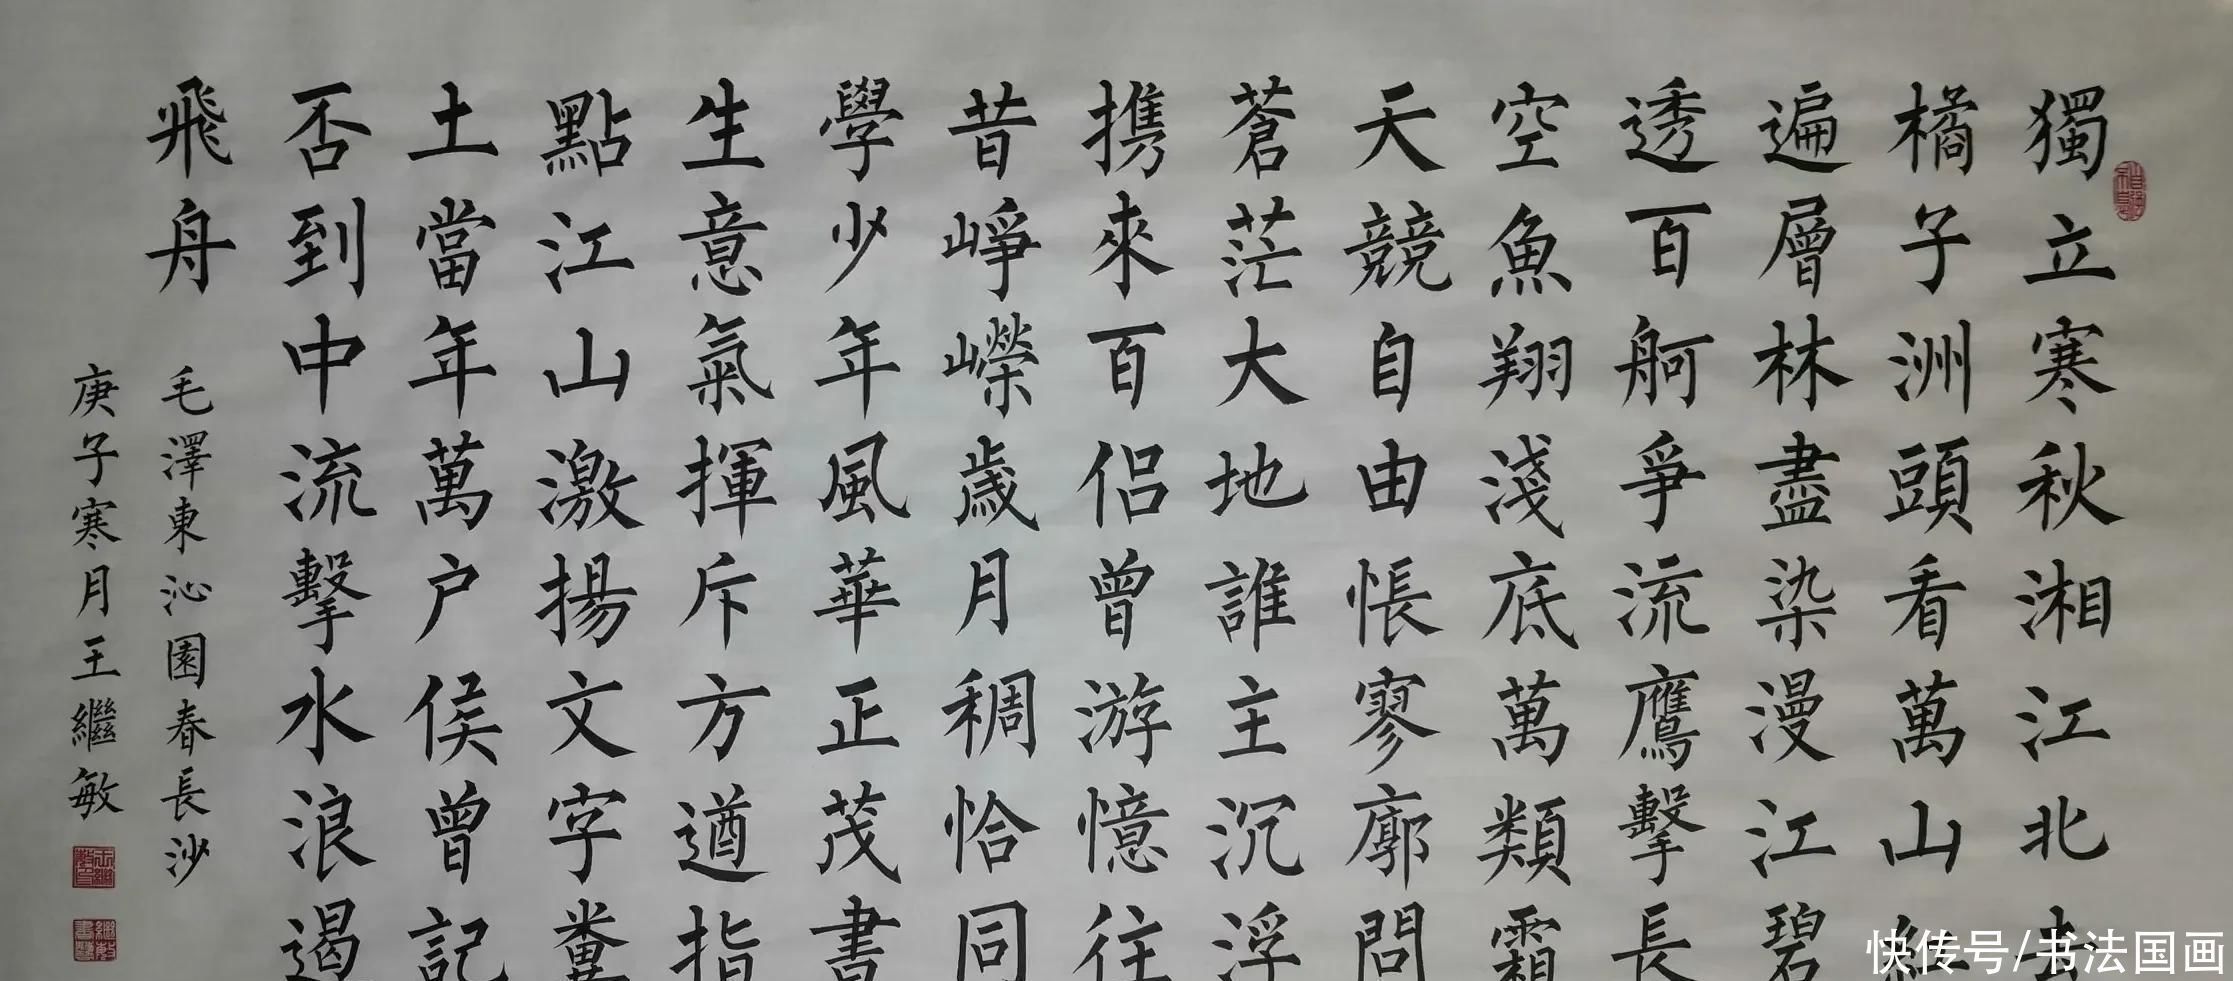 獨立寒秋湘江北去
橘子洲頭看萬山紅
遍層林盡染漫江碧
透百舸爭流鷹擊長
空魚翔淺底萬類霜
天競自由悵寥廓問
蒼茫大地誰主沉浮
携來百侣曾游憶往
昔崢嶸歲月稠恰同
學少年風華正茂書
生意氣揮斥方遒指
點江山激揚文字糞
土當年萬户侯曾記
否到中流擊水浪遏
飛舟
毛澤東沁園春長沙
庚子寒月王繼敏
快传号/书法国画